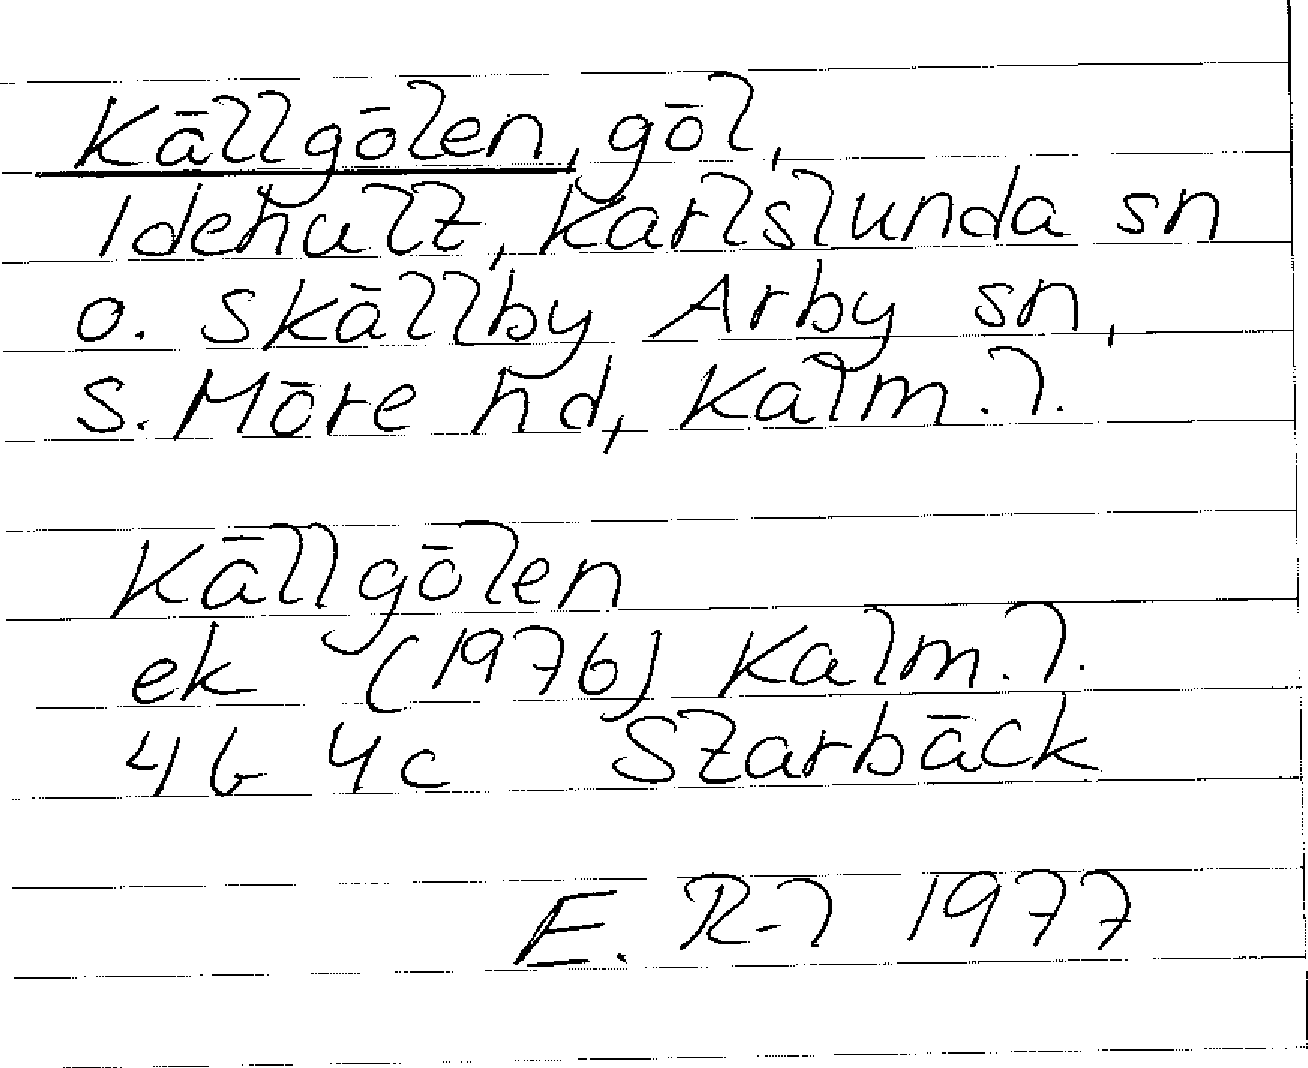 Källgölen, göl,
Idehult, Karlslunda sn
o. Skällby Arby sn,
S. Möre hd, Kalm. l.
Källgölen
ek (1976) Kalm. l.
4b 4c Starbäck
E. R-l 1977